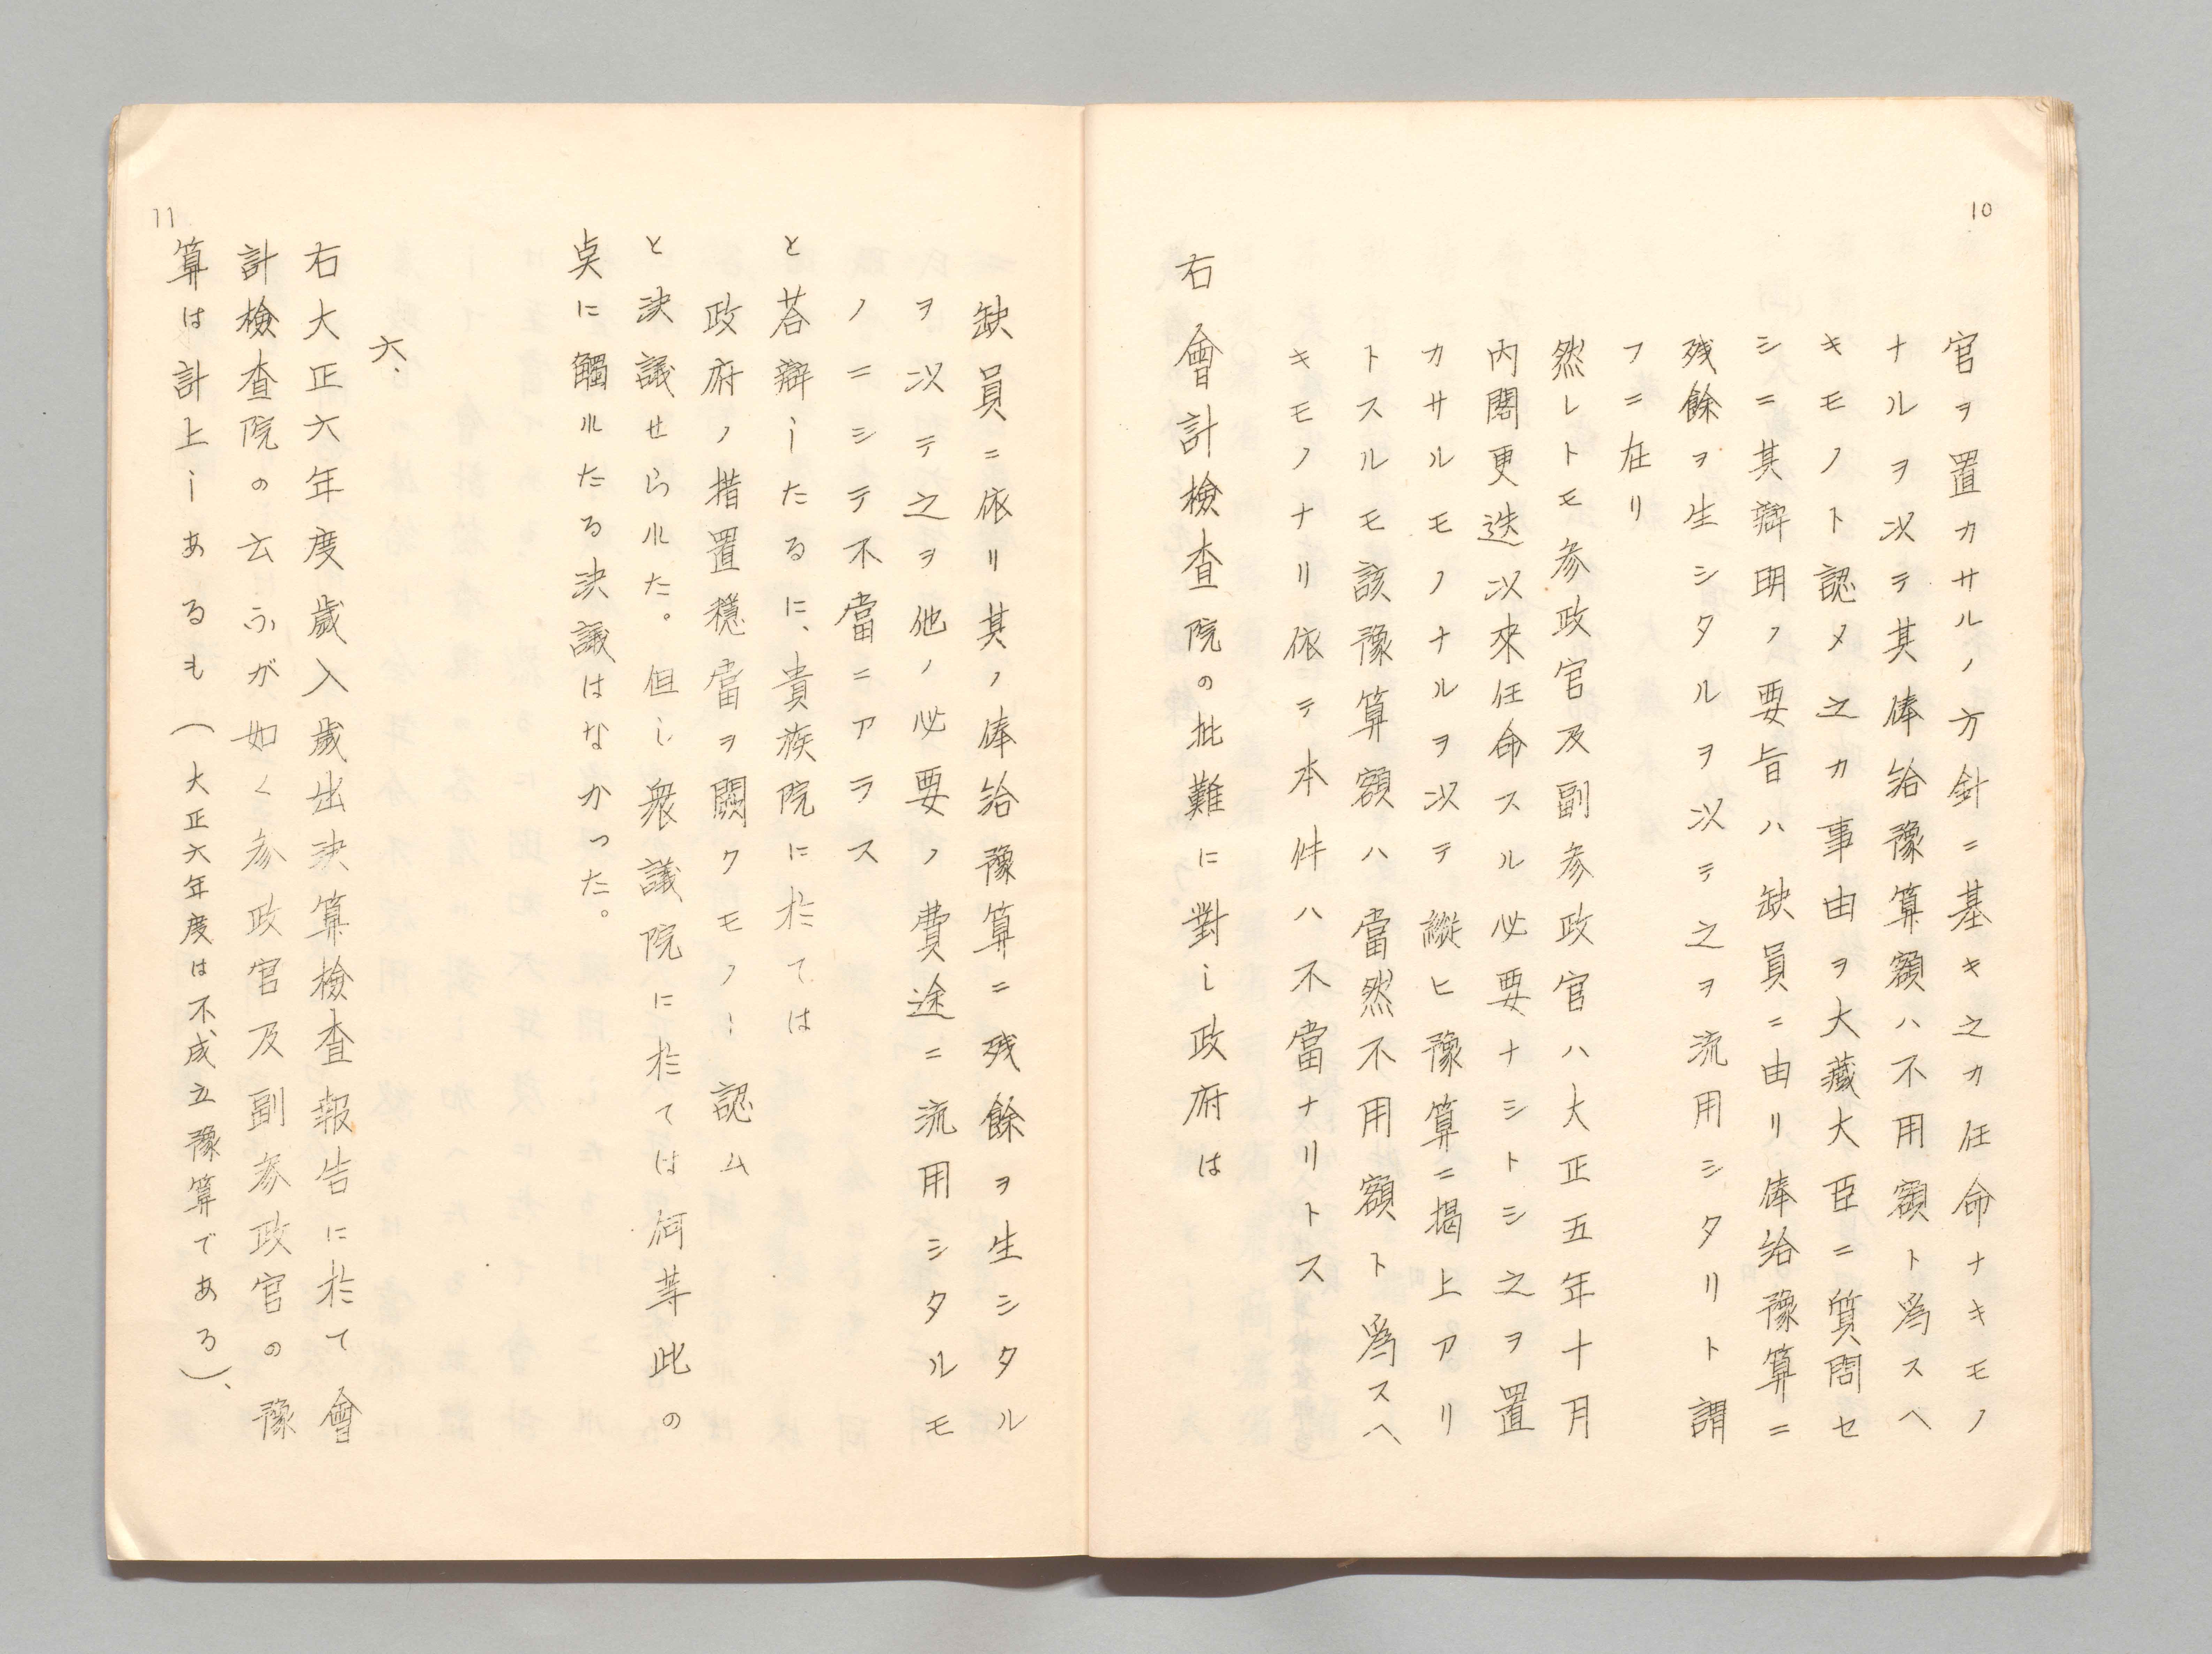 10
官ヲ置カサルノ方針ニ基キ之カ任命ナキモノ
ナルヲ以テ其俸給豫算額ハ不用額ト爲スヘ
キモノト認メ之カ事由ヲ大藏大臣ニ質問セ
シニ其辯明ノ要旨ハ缺員ニ由リ俸給豫算ニ
残餘ヲ生シタルヲ以テ之ヲ流用シタリト謂
フニ在リ
然レトモ参政官及副参政官ハ大正五年十月
内閣更迭以來任命スル必要ナシトシ之ヲ置
カサルモノナルヲ以テ縱ヒ豫算ニ掲上アリ
トスルモ該豫算額ハ當然不用額ト爲スヘ
キモノナリ依テ本件ハ不當ナリトス
右會計檢査院の批難に對し政府は
缺員ニ依リ其ノ俸給豫算ニ残餘ヲ生シタル
ヲ以テ之ヲ他ノ必要ノ費途ニ流用シタルモ
ノニシテ不當ニアラス
と荅辯したるに、貴族院に於ては
政府ノ措置穩當ヲ闕クモノト認ム
と決議せられた。但し衆議院に於ては何等此の
奌に觸れたる決議はなかった。
六、
右大正六年度歲入歲出決算檢査報告に於て會
計檢査院の云ふが如く参政官及副参政官の豫
算は計上しあるも(大正六年度は不成立豫算である)、
11